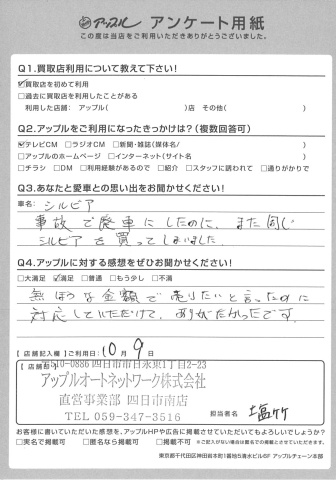 アップル アンケート用紙
この度は当店をご利用いただきありがとうございました。
Q1.買取店利用について教えて下さい!
☑買取店を初めて利用
□過去に買取店を利用したことがある
利用した店舗: アップル( )店 その他( )
Q2.アップルをご利用になったきっかけは?(複数回答可)
☑テレビCM □ラジオCM □新聞・雑誌(媒体名/ )
□アップルのホームページ □インターネット(サイト名 )
□チラシ □DM □利用経験があるので □紹介 □スタッフに誘われて □通りがかりで
Q3.あなたと愛車との思い出をお聞かせください!
車名: シルビア
事故で廃車にしたのに、また同じ
シルビアを買ってしまいました。
Q4.アップルに対する感想をぜひお聞かせください!
□大満足 ☑満足 □普通 □もう少し □不満
無ぼうな金額で売りたいと言ったのに
対応していただけて、ありがたかったです。
【店舗記入欄】ご利用日:10月9日
【店舗印】
〒510-0886 四日市市日永東1丁目2-23
アップルオートネットワーク株式会社
直営事業部 四日市南店
TEL 059-347-3516
担当者名
お客様に書いていただいた感想を、アップルHPや広告に掲載させていただいてもよろしいでしょうか?
□実名で掲載可 □匿名なら掲載可 □掲載不可 ※ご記入がない場合は匿名での掲載とさせていただきます。
東京都千代田区神田岩本町1番地5清水ビル6F アップルチェーン本部